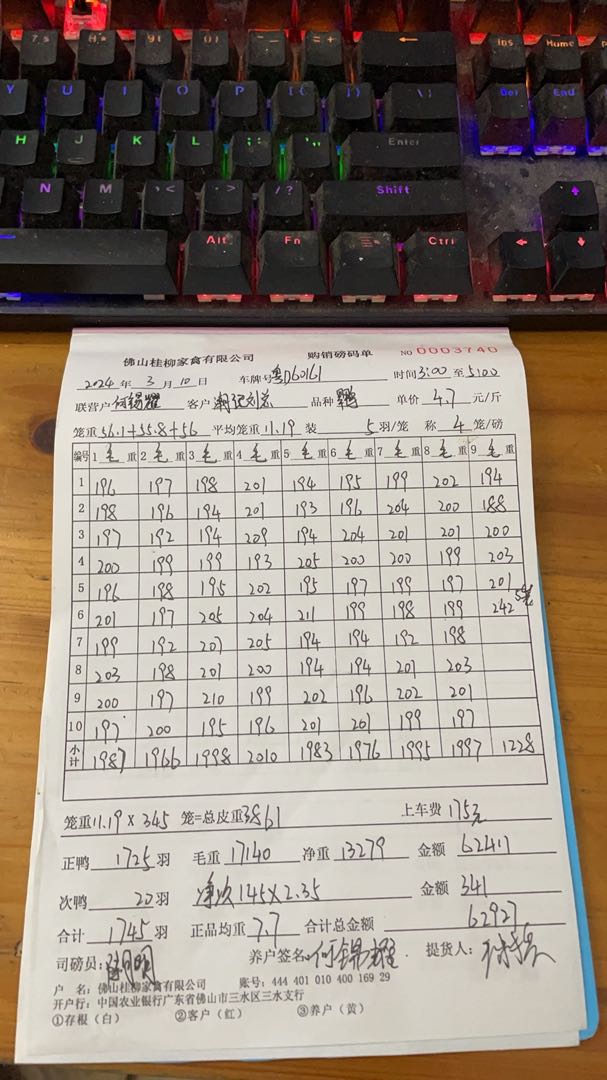 7& 8* 9( 0) -_ =+ ← Ins Home
Y U I O P [{ ]} \| Del End
H J K L ;: '" Enter
N M ,< .> /? Shift ↑
Alt Fn Ctrl ← ↓
佛山桂柳家禽有限公司 购销磅码单 NO 0003740
2024年 3月 10日 车牌号 粤D60161 时间3:00 至5:00
联营户 何锦耀 客户 品种 单价 4.7 元/斤
笼重 56.1+55.8+56 平均笼重 11.19 装 5 羽/笼 称 4 笼/磅
编号 1 毛 重 2 毛 重 3 毛 重 4 毛 重 5 毛 重 6 毛 重 7 毛 重 8 毛 重 9 毛 重
1 196 197 198 201 194 195 199 202 194
2 198 196 194 201 193 196 204 200 188
3 197 192 194 209 194 204 201 201 200
4 200 199 199 193 205 200 200 199 203
5 196 198 195 202 195 197 199 197 201
6 201 197 205 204 211 199 198 199 242 5笼
7 199 192 207 205 194 194 192 198
8 203 198 201 200 194 194 201 203
9 200 197 210 199 202 196 202 201
10 197 200 195 196 201 201 199 197
小计 1987 1966 1998 2010 1983 1976 1995 1997 1228
笼重 11.19 × 345 笼=总皮重 3861 上车费 175元
正鸭 1725 羽 毛重 17140 净重 13279 金额 62411
次鸭 20 羽 净次145×2.35 金额 341
合计 1745 羽 正品均重 7.7 合计总金额 62927
司磅员: 养户签名: 何锦耀 提货人:
户 名: 佛山桂柳家禽有限公司 账号: 444 401 010 400 169 29
开户行: 中国农业银行广东省佛山市三水区三水支行
①存根（白） ②客户（红） ③养户（黄）